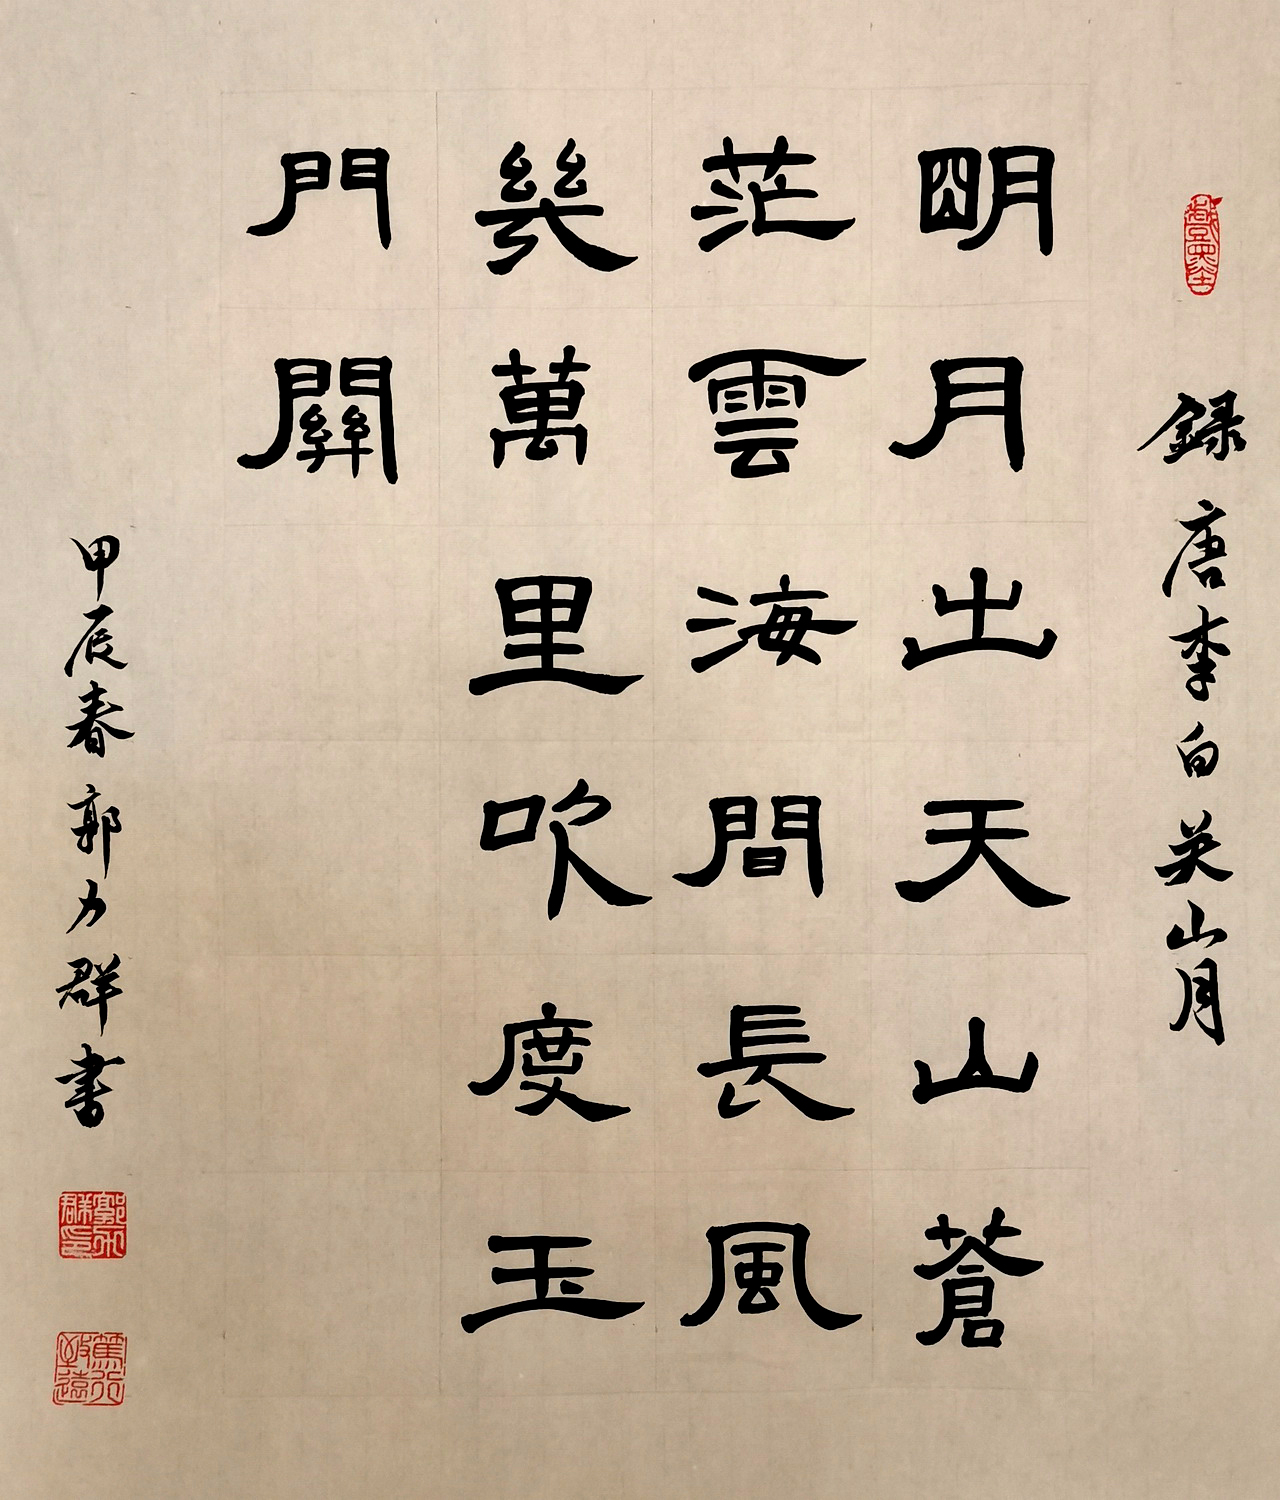 録唐李白关山月
明月出天山蒼
茫雲海間長風
幾萬里吹度玉
門關
甲辰春郭力群書